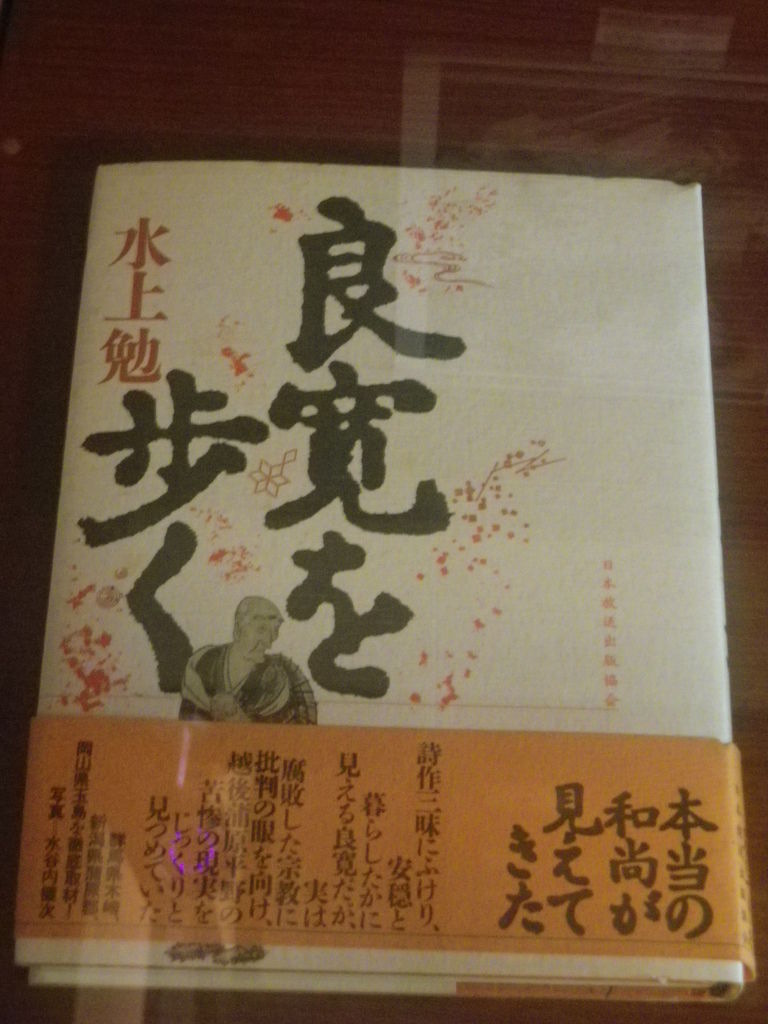 良寛を
歩く
水上勉
日本放送出版協会
本当の
和尚が
見えて
きた
詩作三昧にふけり、
安穏と
暮らしたかに
見える良寛だが、
実は
腐敗した宗教に
批判の眼を向け、
越後蒲原平野の
苦惨の現実を
じっくりと
見つめていた
群馬県木崎、
新潟県蒲原郡、
岡山県玉島を徹底取材!
写真―水谷内健次